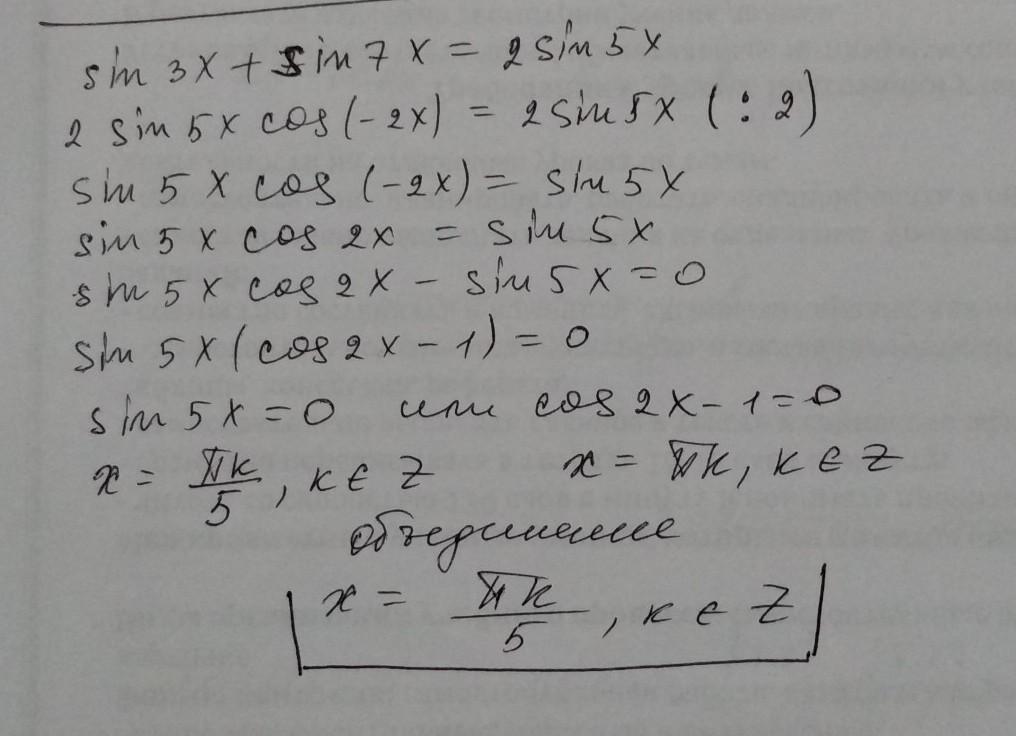 sin 3x + sin 7x = 2 sin 5x
2 sin 5x cos (-2x) = 2 sin 5x (: 2)
sin 5x cos (-2x) = sin 5x
sin 5x cos 2x = sin 5x
sin 5x cos 2x - sin 5x = 0
sin 5x (cos 2x - 1) = 0
sin 5x = 0 или cos 2x - 1 = 0
x = πk/5, k ∈ Z x = πk, k ∈ Z
объединение
x = πk/5, k ∈ Z